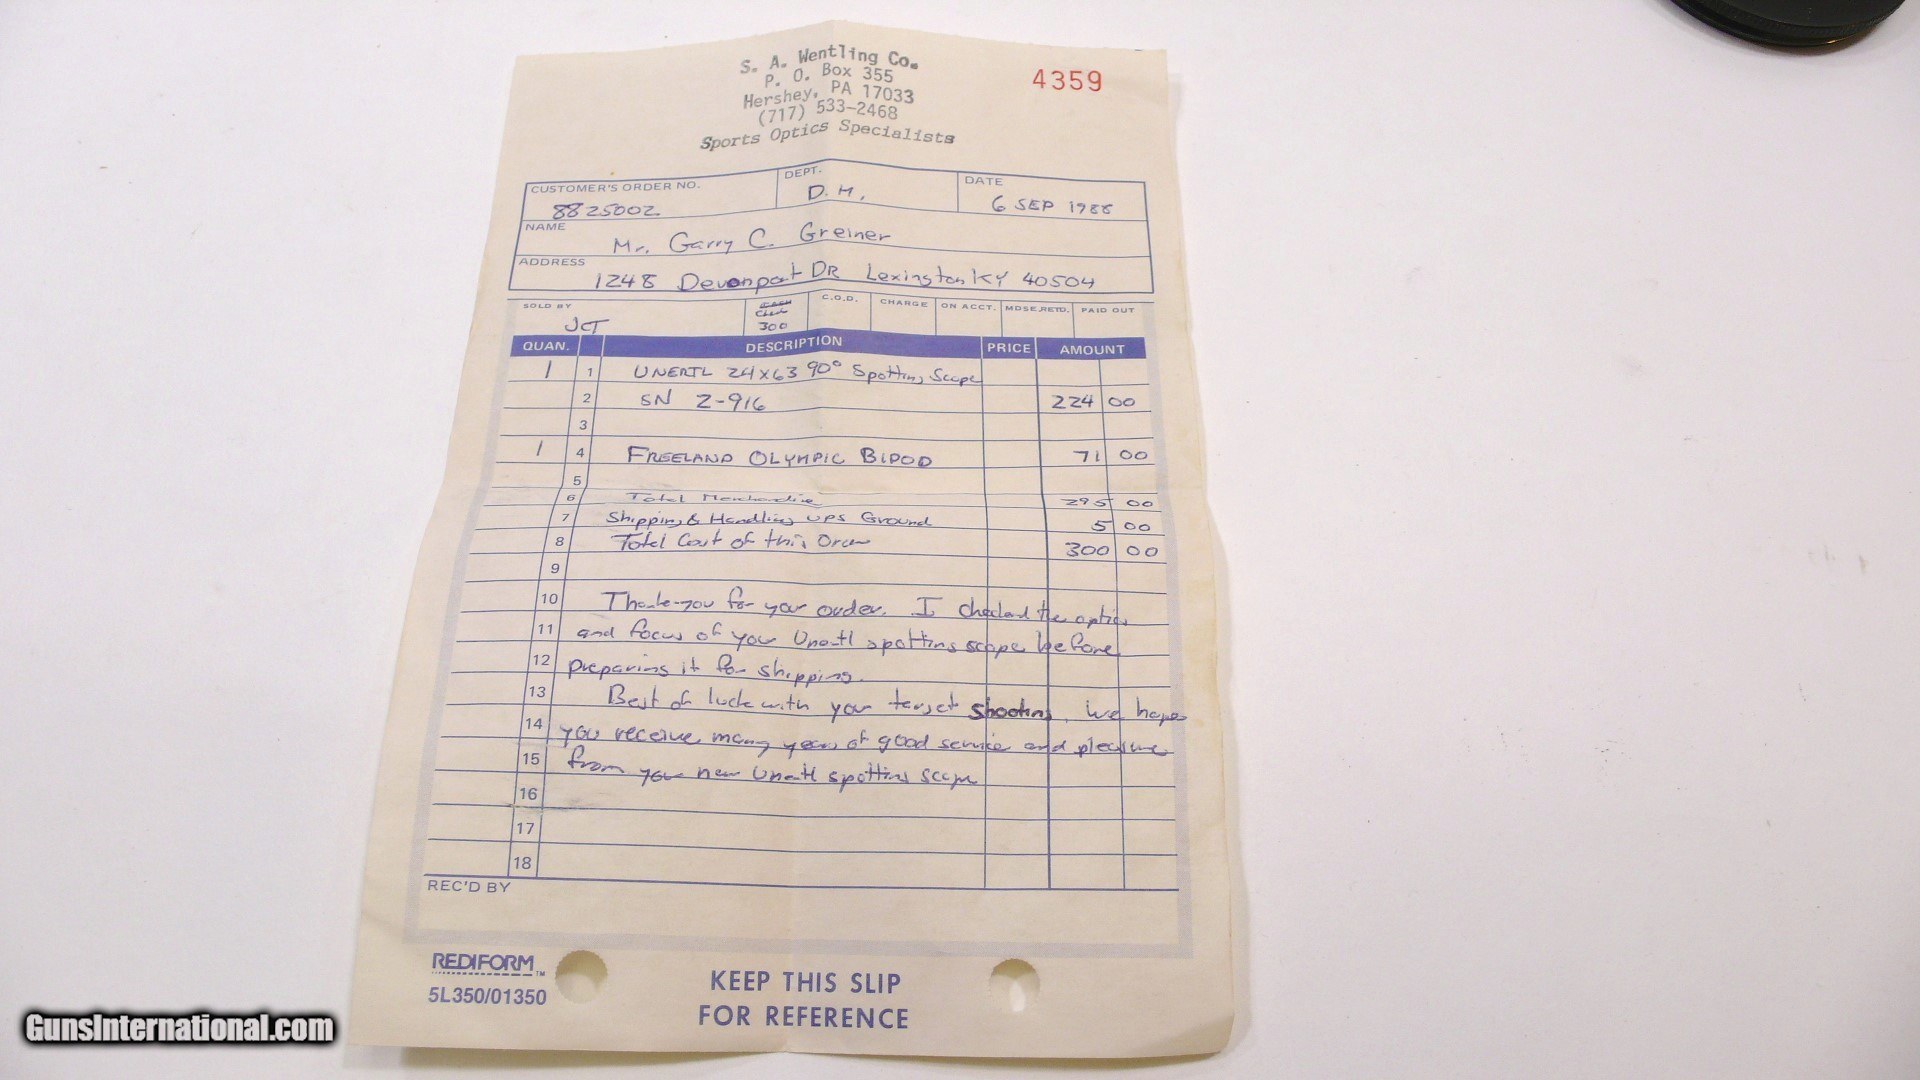 S. A. Wentling Co.
P. O. Box 355
Hershey, PA 17033
(717) 533-2468
Sports Optics Specialists
4359
CUSTOMER'S ORDER NO. DEPT. DATE
8825002 D.H. 6 SEP 1988
NAME
Mr. Garry C. Greiner
ADDRESS
1248 Devonport DR Lexington KY 40504
SOLD BY C.O.D. CHARGE ON ACCT. MDSE.RETD. PAID OUT
JCT 300
QUAN. DESCRIPTION PRICE AMOUNT
1 1 UNERTL 24x63 90° Spotting Scope
2 SN Z-916 224 00
3
1 4 FREELAND OLYMPIC BIPOD 71 00
5
6 Total Merchandise 295 00
7 Shipping & Handling UPS Ground 5 00
8 Total Cost of this Order 300 00
9
10 Thank-you for your order. I checked the optics
11 and focus of your Unertl spotting scope before
12 preparing it for shipping.
13 Best of luck with your target shooting. We hope
14 you receive many years of good service and pleasure
15 from your new Unertl spotting scope
16
17
18
REC'D BY
REDIFORM™
5L350/01350
KEEP THIS SLIP
FOR REFERENCE
GunsInternational.com